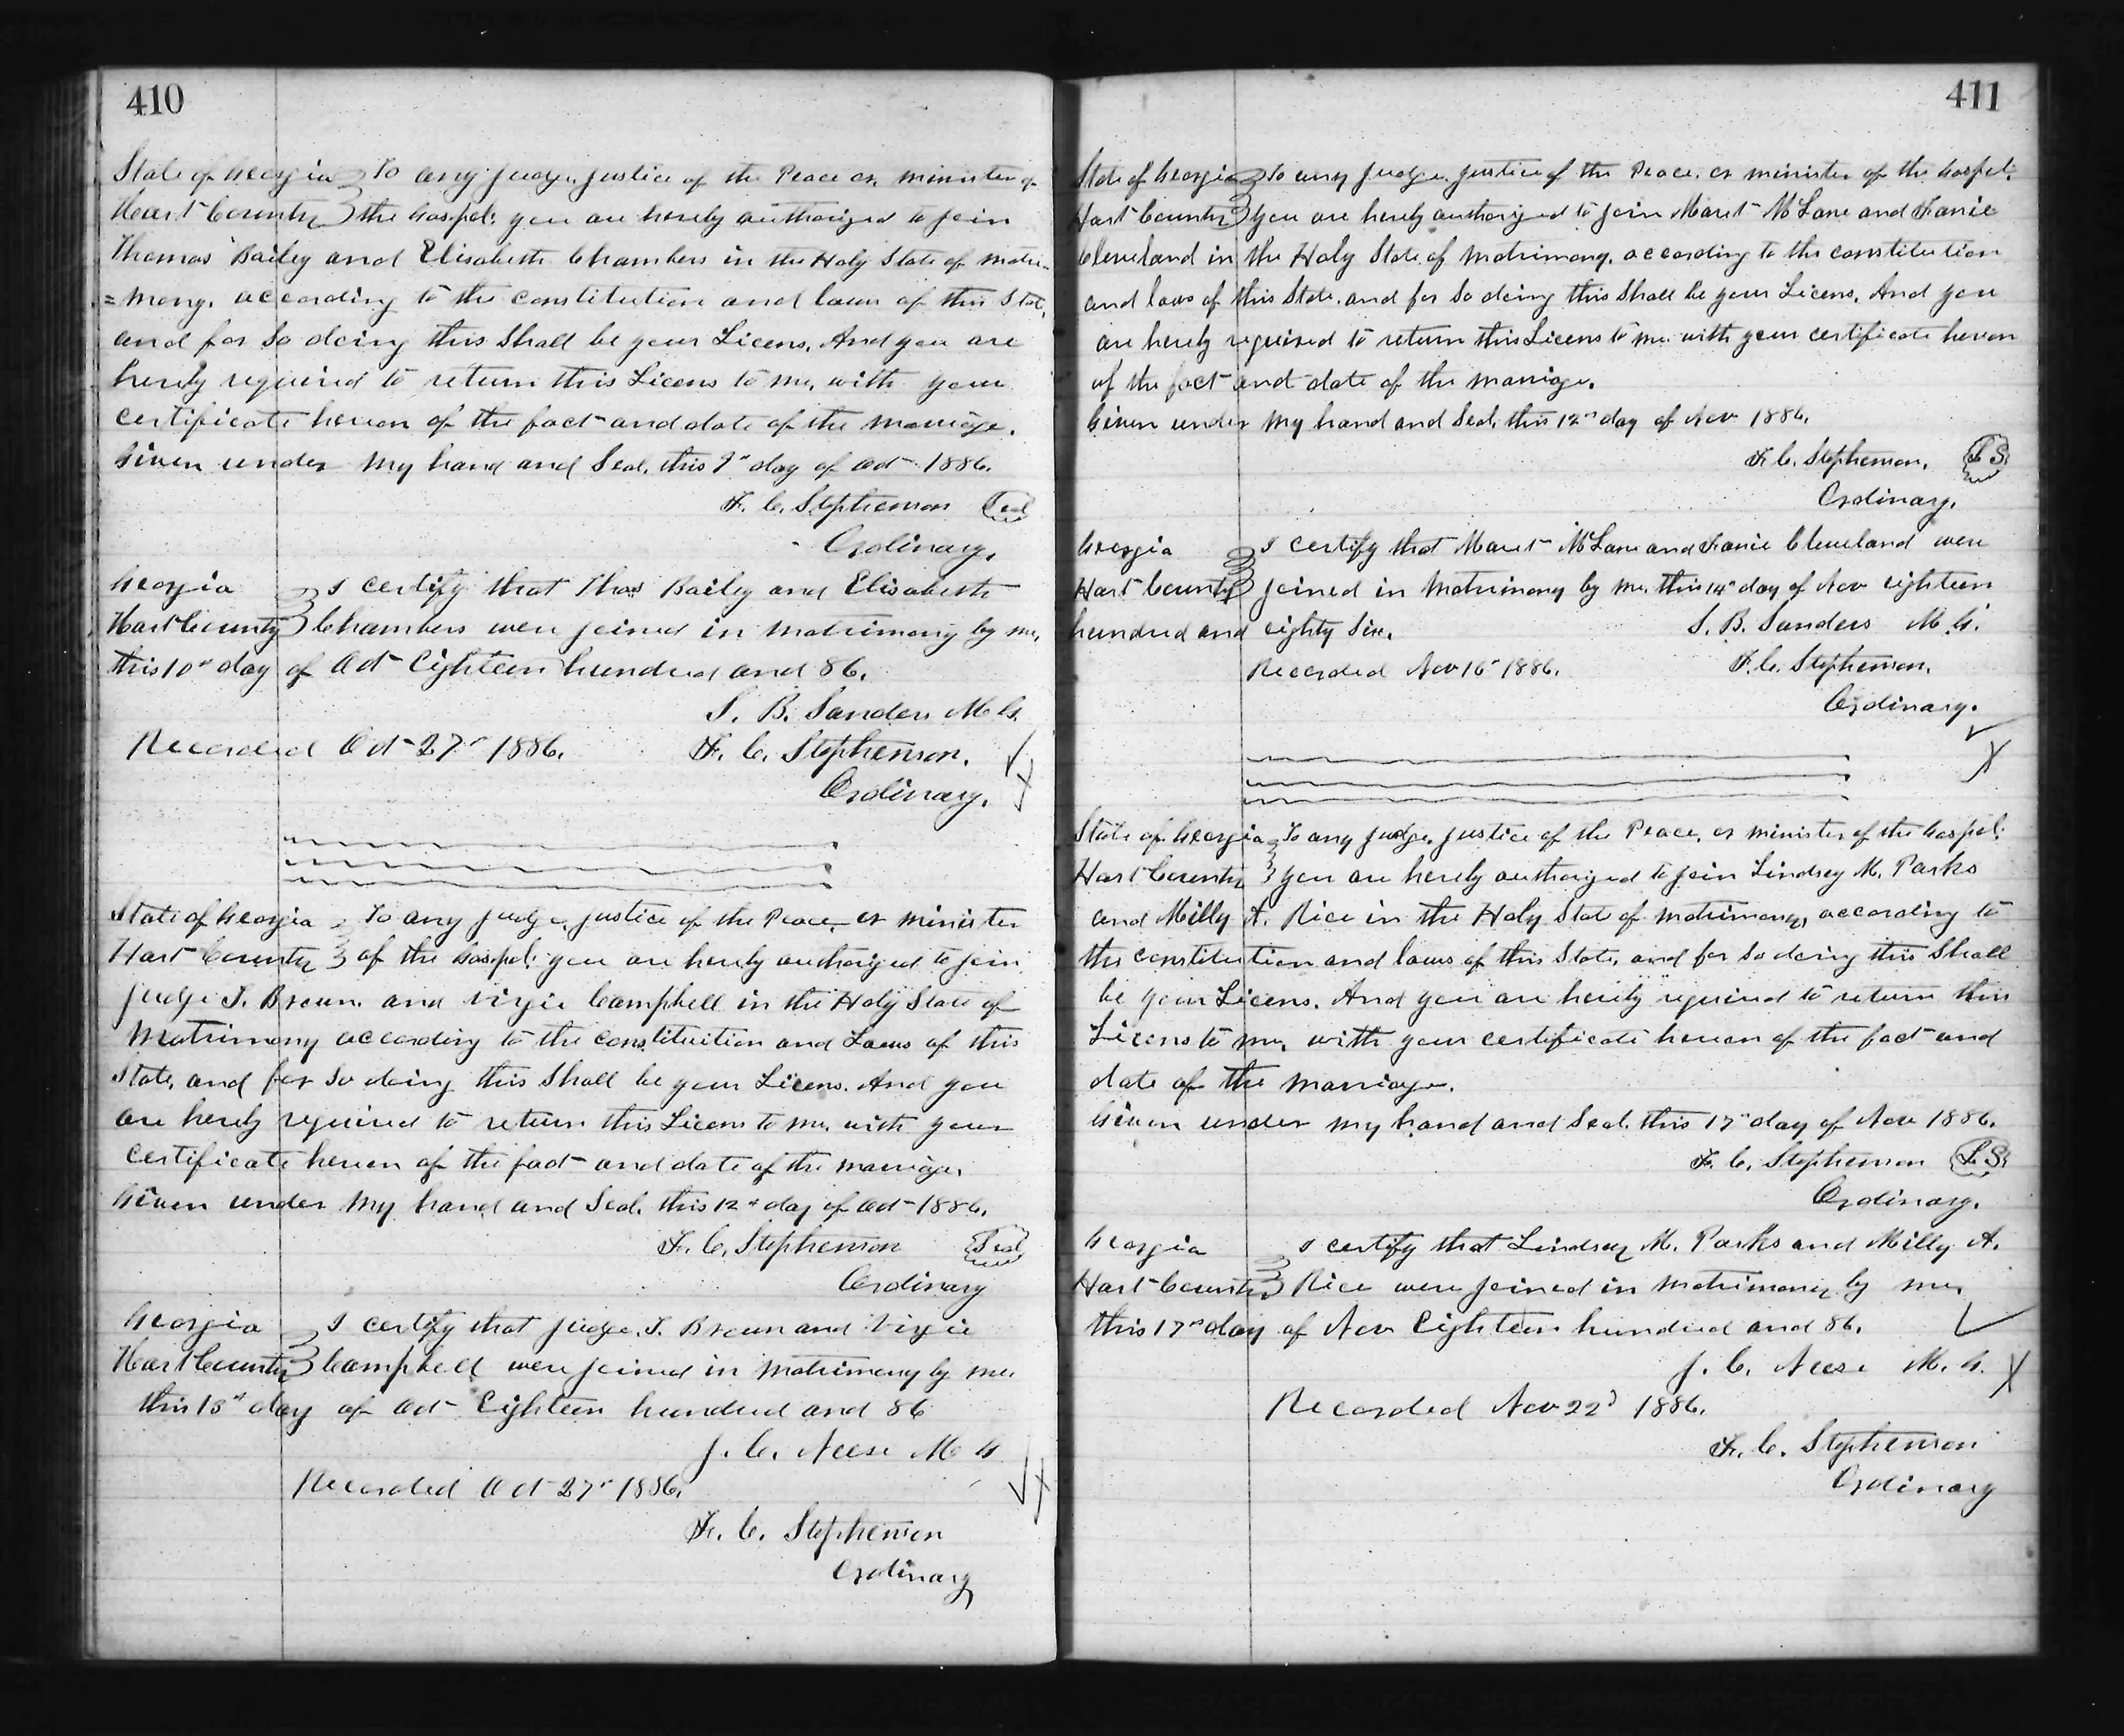 410
State of Georgia To any Judge, Justice of the Peace or, minister of
Hart County the Gospel: you are hereby authorized to join
Thomas Bailey and Elisabeth Chambers in the Holy State of matri-
=mony, according to the constitution and laws of this State,
and for So doing this Shall be your Licens, And you are
hereby required to return this Licens to me, with your
certificate hereon of the fact and date of the marriage.
Given under my hand and Seal, this 9" day of Oct 1886.
F. C. Stephenson Seal
Ordinary,
Georgia I certify that Thos Bailey and Elisabeth
Hart County Chambers were joined in matrimony by me,
this 10th day of Oct Eighteen hundred and 86.
S. B. Sanders M G.
Recorded Oct 27" 1886. F. C. Stephenson.
Ordinary.
State of Georgia To any Judge, Justice of the Peace, or minister
Hart County of the Gospel: you are hereby authorized to join
Judge J. Brown. and Virgie Campbell in the Holy State of
Matrimony according to the constituition and Laws of this
State, and for So doing this Shall be your Licens. And you
are hereby required to return this Licens to me, with your
certificate hereon of the fact and date of the marriage,
Given under my hand and Seal, this 12th day of Oct 1886.
F. C. Stephenson Seal
Ordinary
Georgia I certify that Judge J. Brown and Virgie
Hart County Campbell were joined in matrimony by me.
this day of Oct Eighteen hundred and 86
J. C. Neese M G
Recorded Oct 27" 1886.
F. C. Stephenson
Ordinary
411
State of Georgia To any Judge, Justice of the Peace, or minister of the Gospel:
Hart County you are hereby authorized to join Maret McLane and Fanie
Cleveland in the Holy State of Matrimony, according to the constitution
and laws of this State, and for So doing this Shall be your Licens, And you
are hereby required to return this Licens to me with your certificate hereon
of the fact and date of the marriage.
Given under my hand and Seal, this 12th day of Nov 1886.
F. C. Stephenson, L S.
Ordinary,
Georgia I certify that Maret McLane and Fanie Cleveland were
Hart County joined in Matrimony by me, this 14" day of Nov eighteen
hundred and eighty Six. S. B. Sanders M. G.
Recorded Nov 16" 1886. F. C. Stephenson,
Ordinary.
State of Georgia To any Judge, Justice of the Peace, or minister of the Gospel:
Hart County you are hereby authorized to join Lindsey M. Parks
and Milly A. Rice in the Holy State of matrimony, according to
the constitution and laws of this State, and for So doing this Shall
be your Licens. And you are hereby required to return this
Licens to me, with your certificate hereon of the fact and
date of the marriage.
Given under my hand and Seal, this 17" day of Nov 1886.
F. C. Stephenson L S.
Ordinary.
Georgia I certify that Lindsey M. Parks and Milly A.
Hart County Rice were joined in matrimony by me,
this 17th day of Nov Eighteen hundred and 86.
J. C. Neese M. G.
Recorded Nov 22d 1886.
F. C. Stephenson
Ordinary